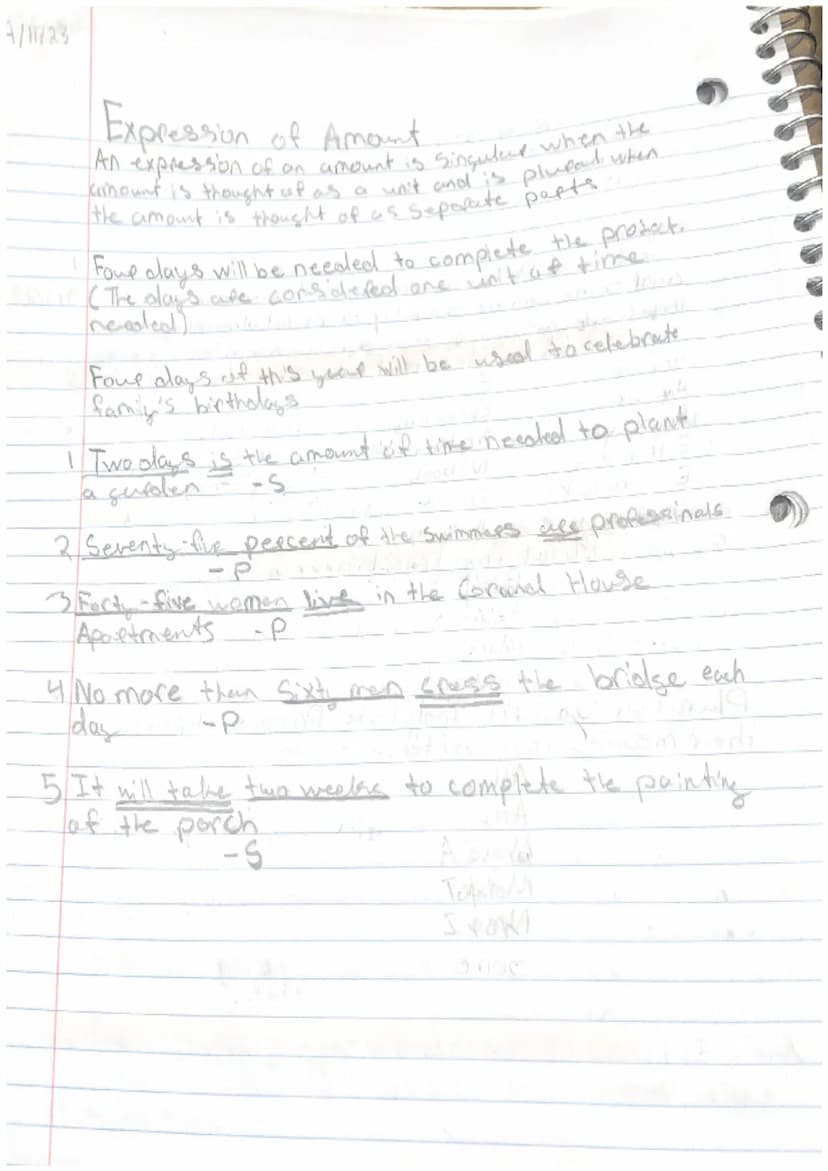 7/11/23
Expression of Amount
An expression of an amount is singular when the
amount is thought of as a unit and is plural when
the amount is thought of as separate parts.
Four days will be needed to complete the project.
(The days are considered one unit of time
needed)
Four days of this year will be used to celebrate
family's birthdays
1 Two days is the amount of time needed to plant
a garden - -S
2 Seventy-five percent of the swimmers are professinals
-P
3 Forty-five women live in the House
Apartments -P
4 No more than sixty men cross the bridge each
day -P
5 It will take two weeks to complete the painting
of the porch
-S